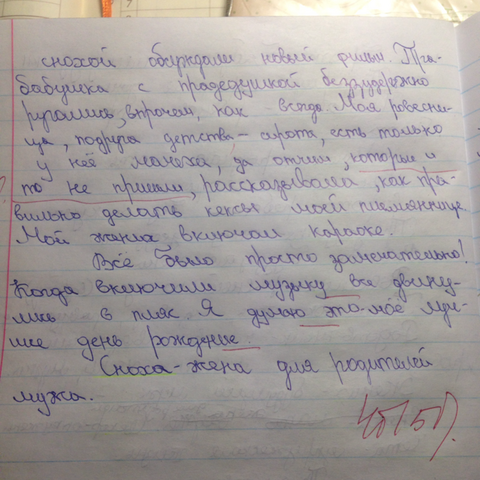 снохой обсуждали новый фильм. Пра-
бабушка с прадедушкой безудержно
ругались, впрочем, как всегда. Моя ровесни-
ца, подруга детства – сирота, есть только
у неё мачеха, да отчим, которые и
то не пришли, рассказывала, как пра-
вильно делать кексы моей племяннице.
Мой жених включал караоке.
Всё было просто замечательно!
Когда включили музыку все двину-
лись в пляс. Я думаю это моё луч-
шее день рождение.
Сноха - жена для родителей
мужа.